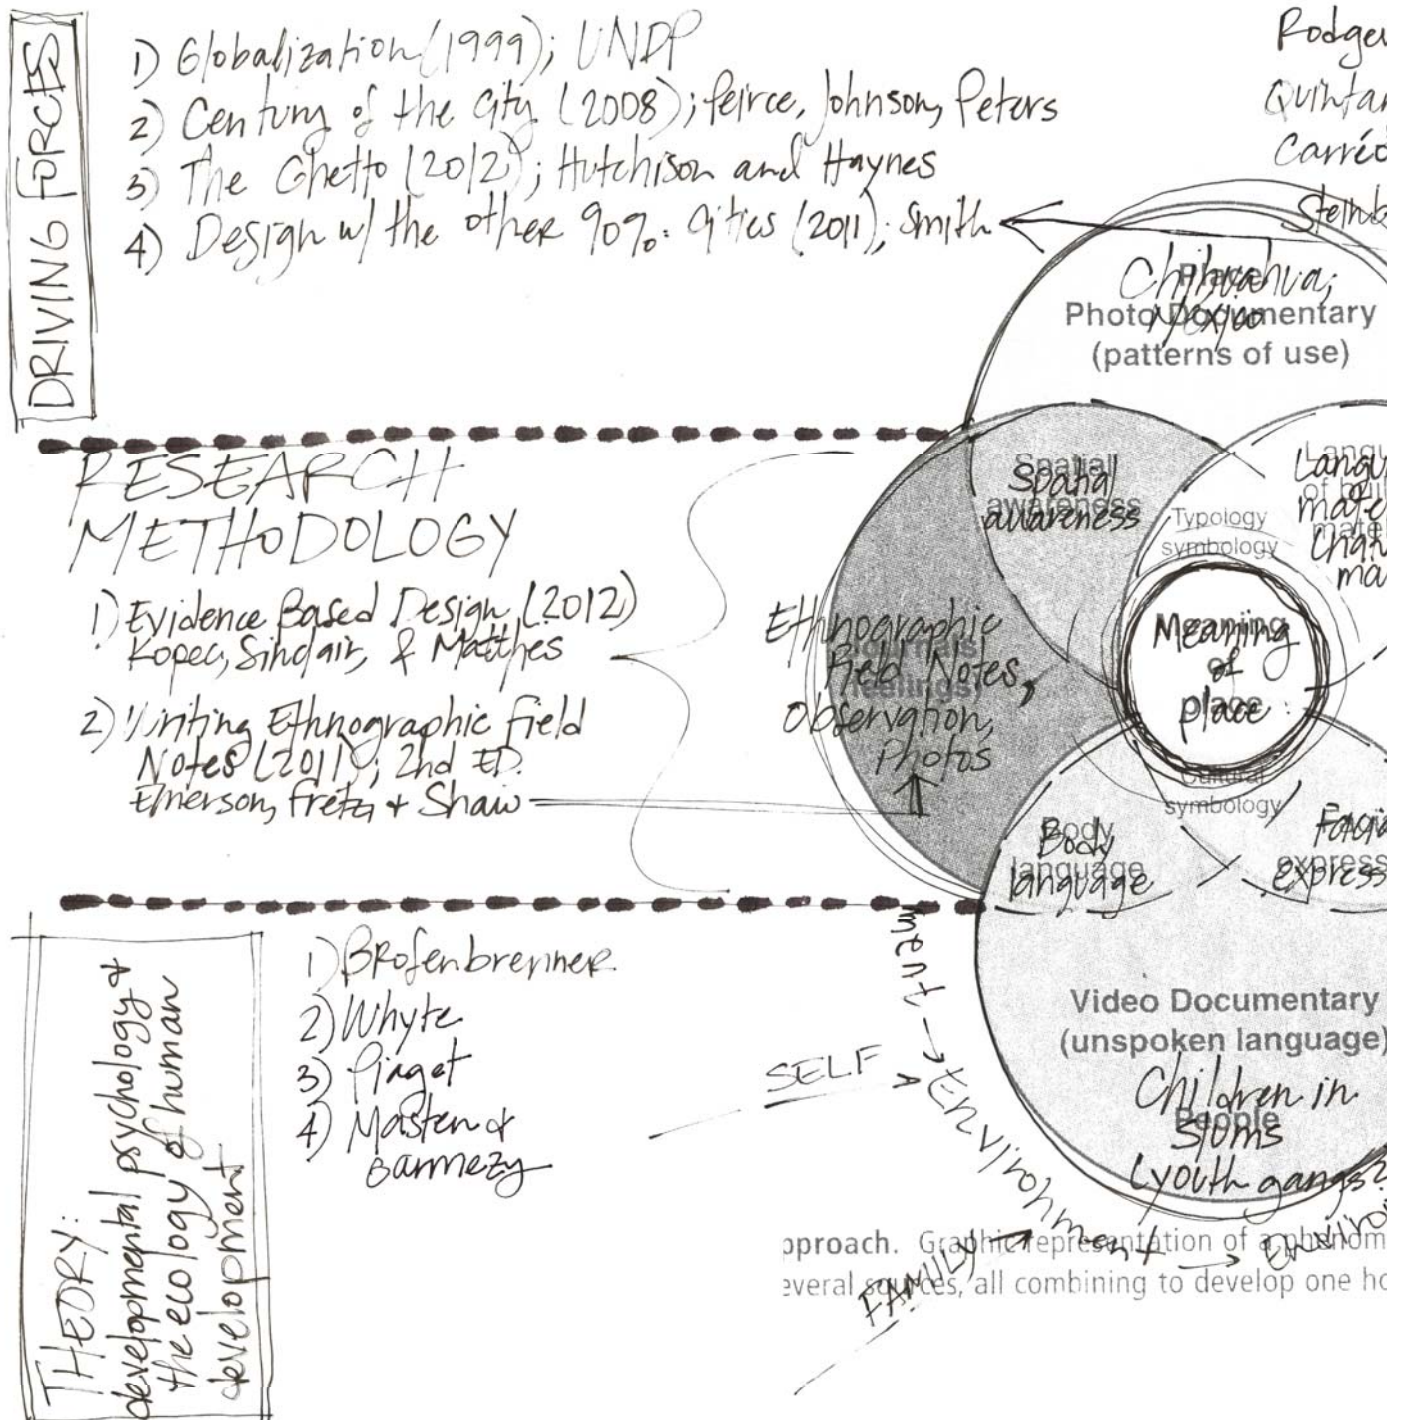 DRIVING FORCES
1) Globalization (1999); UNDP
2) Century of the City (2008); Peirce, Johnson, Peters
3) The Ghetto (2012); Hutchison and Haynes
4) Design w/ the other 90%: Cities (2011); Smith
Rodge
Quintan
Carréo
Steinb
Chihuahua,
México
Place
Photo Documentary
(patterns of use)
RESEARCH
METHODOLOGY
1) Evidence Based Design (2012)
Kopec, Sinclair, & Matthes
2) Writing Ethnographic Field
Notes (2011); 2nd ED.
Emerson, Fretz, + Shaw
Spatial
awareness
Spatial
awareness
Typology
symbology
Langu
of buil
mate
Langu
of
mate
Chan
ma
Ethnographic
Field Notes,
Observation,
Photos
Journals
feelings
Meaning
of
place
Meaning
of
place
Cultural
symbology
Body
language
Body
language
Facia
express
Facia
express
THEORY:
developmental psychology &
the ecology of human
development
1) Brofenbrenner
2) Whyte
3) Piaget
4) Masten &
Garmezy
SELF
FAMILY
ment → Environment → Enviro
Video Documentary
(unspoken language)
People
Children in
slums
(youth gangs?
pproach. Graphic representation of a phenom
everal sources, all combining to develop one ho